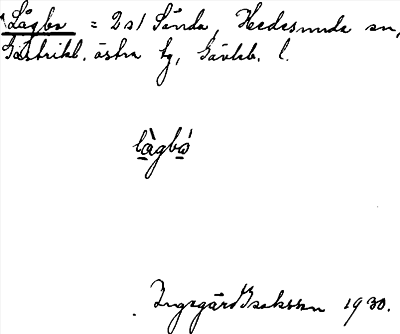 Lågbo = 2 a/ Sånda, Hedesunda sn,
Gästrikl. östra tg, Gävleb. l.
lågbo
Ingegärd Isaksson 1930.